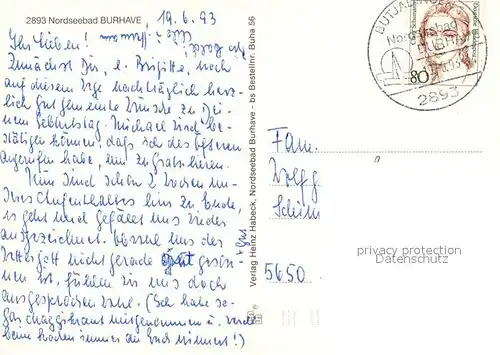 2893 Nordseebad BURHAVE
19.6.93
Ihr Lieben!
Zunächst Dir, l. Brigitte, noch
auf diesem Wege nachträglich herz-
lich gut gemeinte Wünsche zu Dei-
nem Geburtstag. Michael wird be-
stätigen können, daß ich des öfteren
angerufen habe, um zu gratulieren.
Nun sind schon 2 Wochen un-
seres Aufenthaltes hier zu Ende,
es geht und gefällt uns wieder
ausgezeichnet. Obwohl uns der
Wettergott nicht gerade gut geson-
nen ist, fühlen wir uns doch
ausgesprochen wohl. (Ich habe so-
gar mitgenommen u. werde
beim Baden immer an Euch erinnert!)
Verlag Heinz Habeck, Nordseebad Burhave - bs Bestellnr. Buha 56
BUTJADINGEN
Nordseebad
BURHAVE
2893
80
Fam.
Wolfg.
5650
privacy protection
Datenschutz